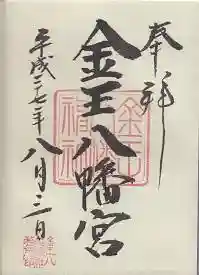 奉拝
金王八幡宮
平成二十七年
八月三日